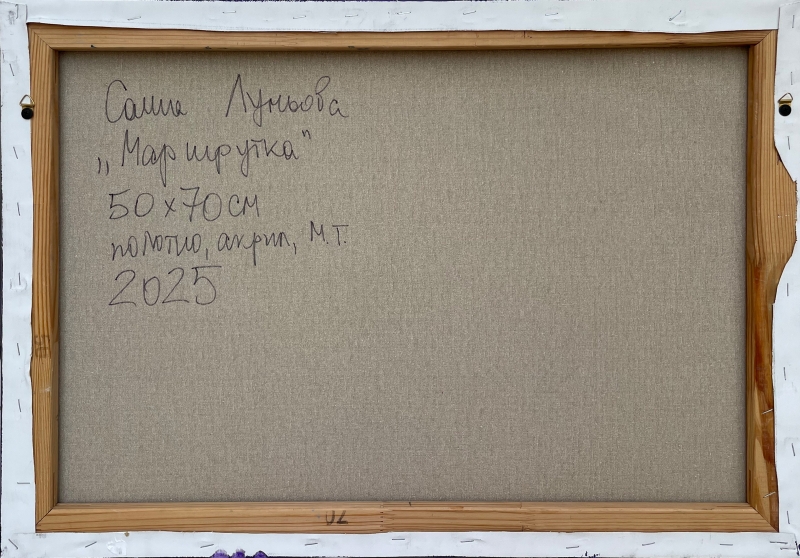 Саша Луньова
„Маршрутка"
50х70 см
полотно, акрил, м.т.
2025
70